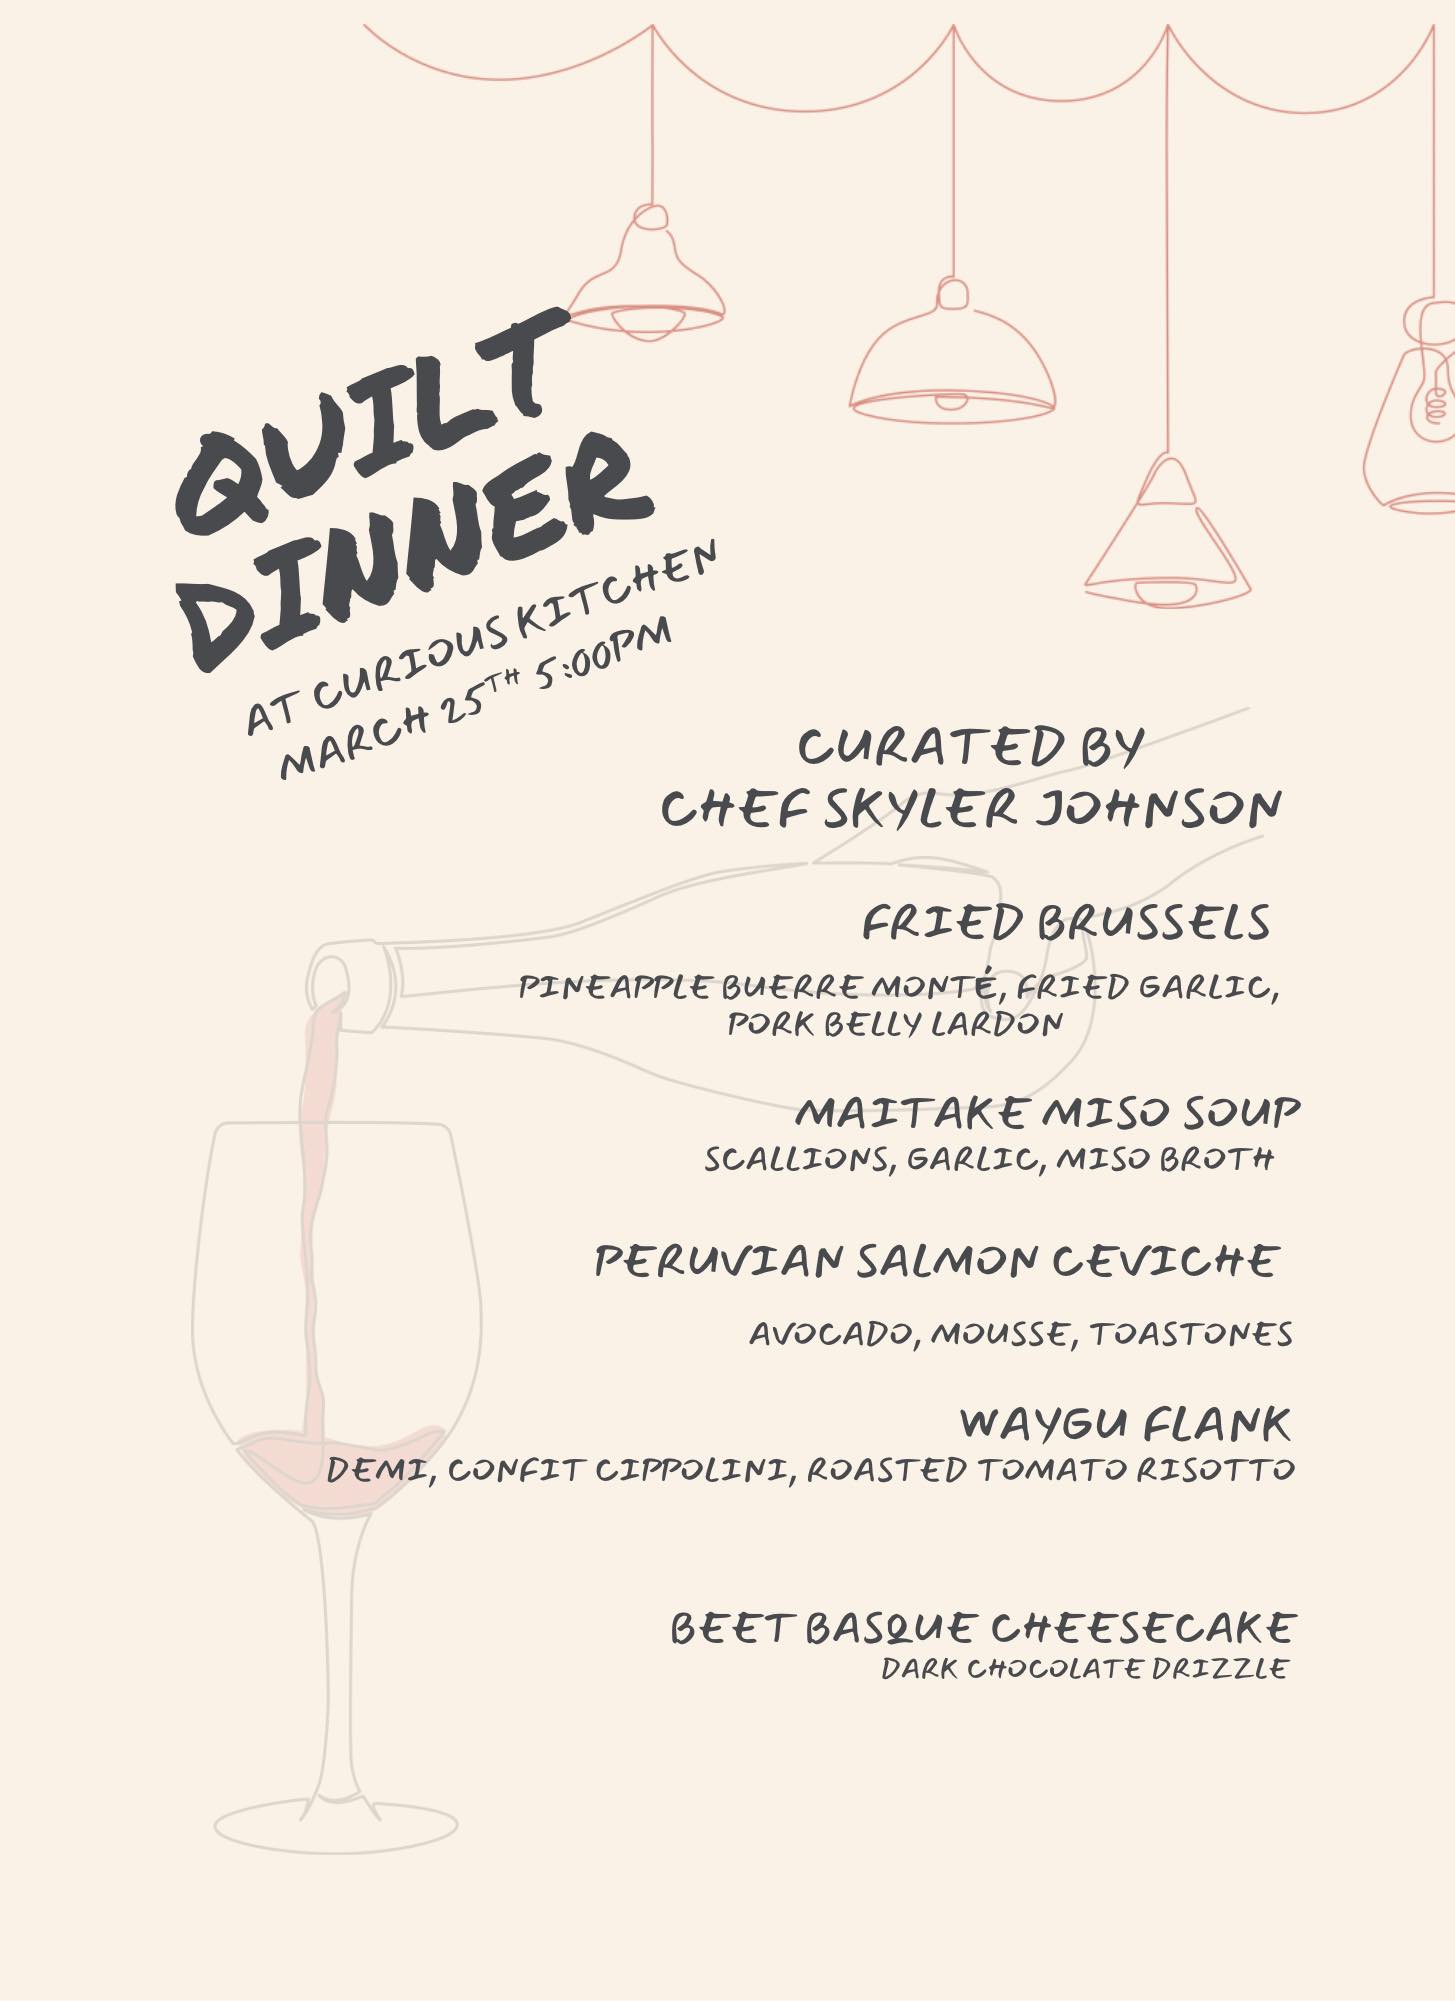 QUILT
DINNER
AT CURIOUS KITCHEN
MARCH 25TH 5:00PM
CURATED BY
CHEF SKYLER JOHNSON
FRIED BRUSSELS
PINEAPPLE BUERRE MONTÉ, FRIED GARLIC,
PORK BELLY LARDON
MAITAKE MISO SOUP
SCALLIONS, GARLIC, MISO BROTH
PERUVIAN SALMON CEVICHE
AVOCADO, MOUSSE, TOASTONES
WAYGU FLANK
DEMI, CONFIT CIPPOLINI, ROASTED TOMATO RISOTTO
BEET BASQUE CHEESECAKE
DARK CHOCOLATE DRIZZLE